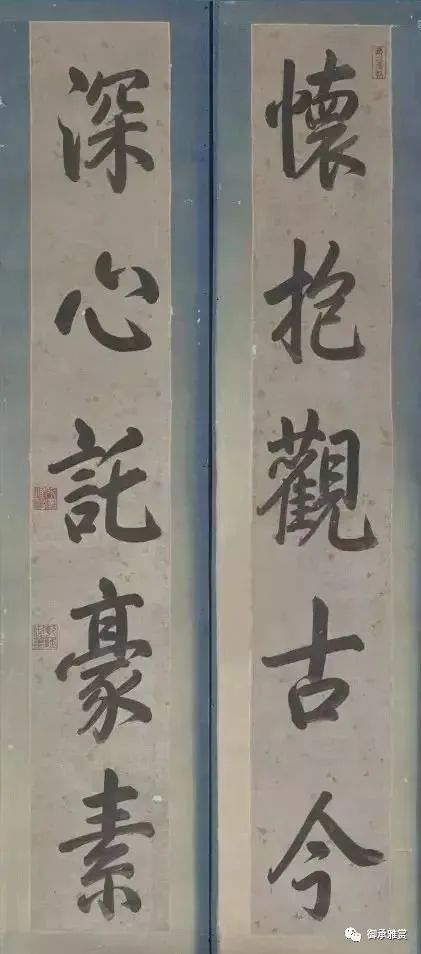 懷抱觀古今
深心託豪素
御承雅赏